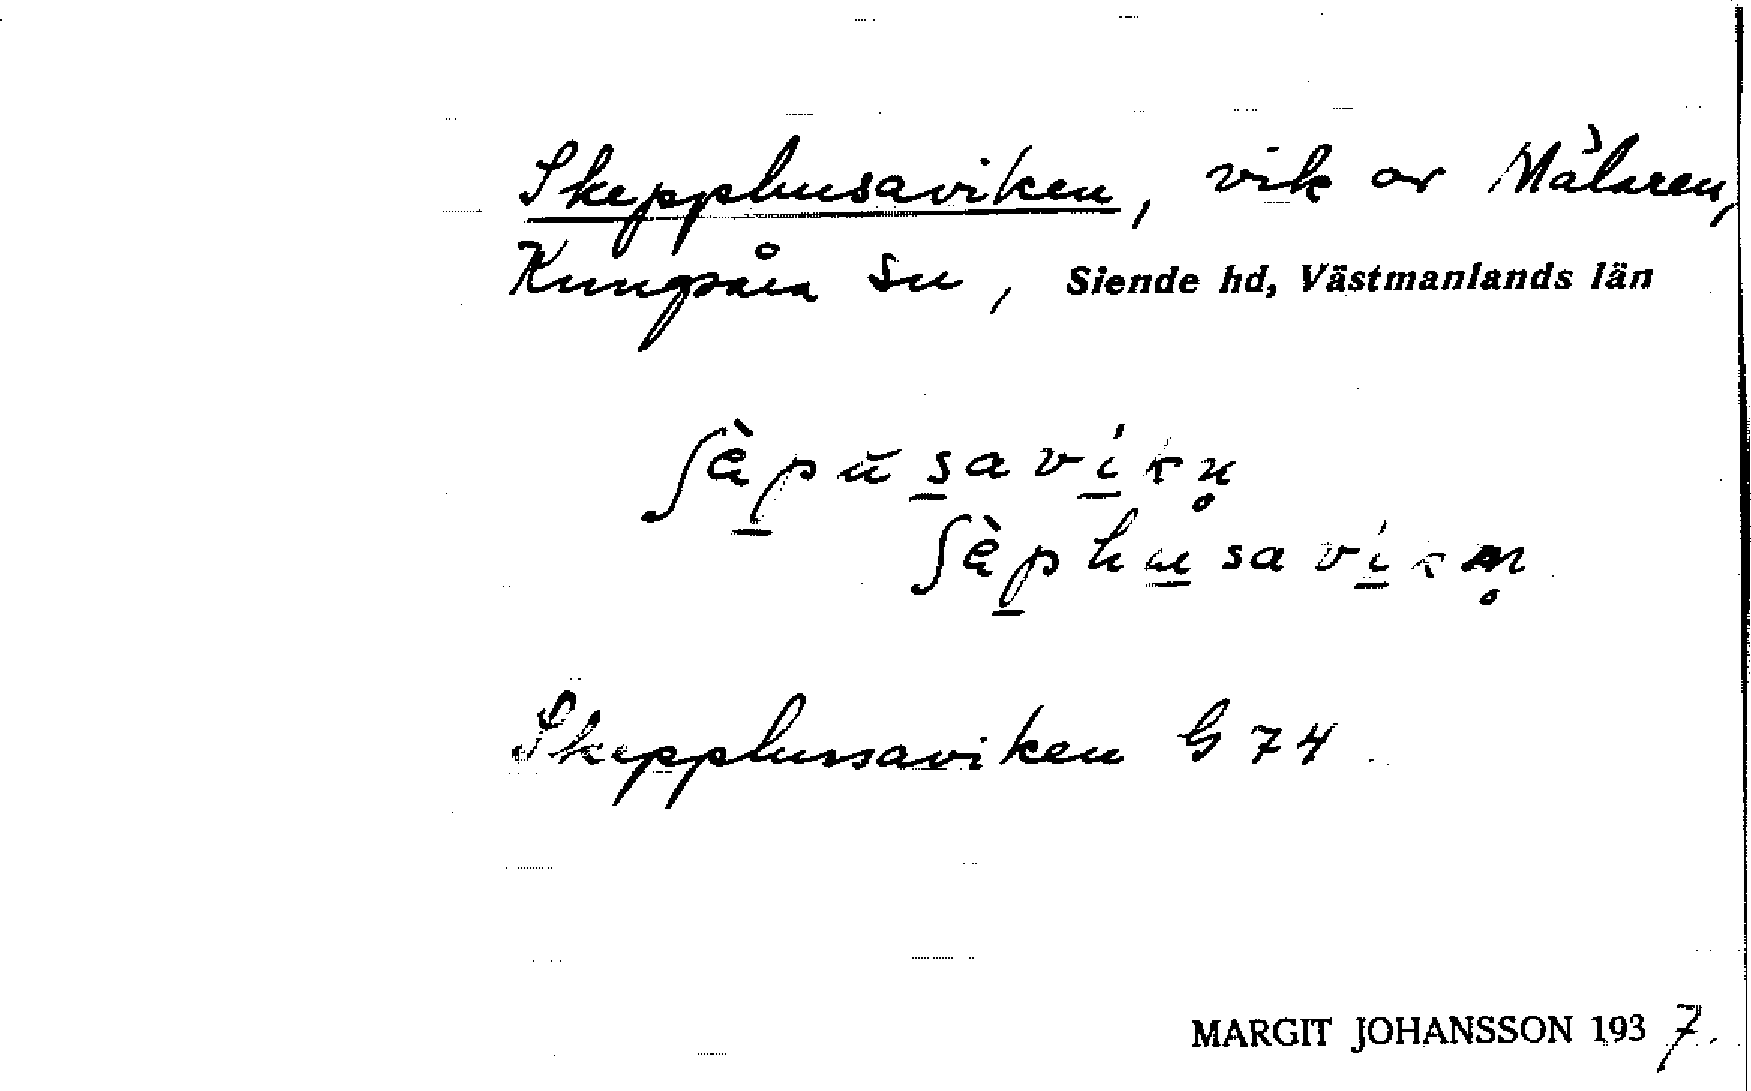 Skepphusaviken, vik av Mälaren,
Kungsåra sn, Siende hd, Västmanlands län
ʃὲpu̇savíkn̥
ʃὲphusavíkn̥
Skepphussaviken G 74
MARGIT JOHANSSON 1937.